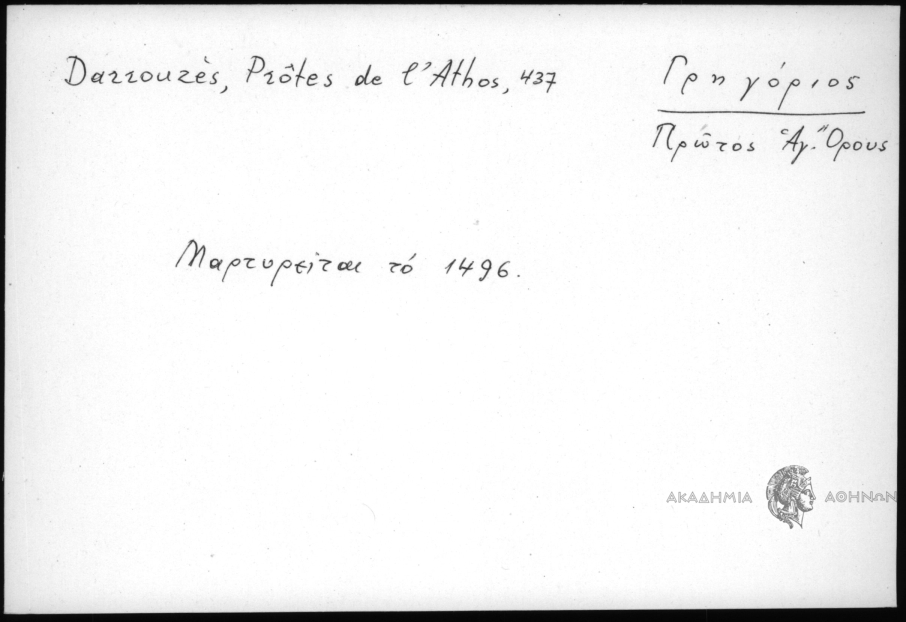 Darrouzès, Prôtes de l'Athos, 437
Γρηγόριος
Πρῶτος Ἁγ. Ὄρους
Μαρτυρεῖται τό 1496.
ΑΚΑΔΗΜΙΑ ΑΘΗΝΩΝ